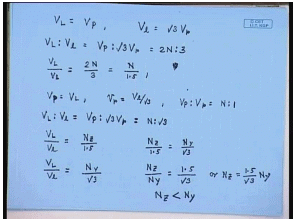 V_L = V_P , V_l = √3 V_p
V_L : V_l = V_P : √3 V_p = 2N : 3
V_L / V_l = 2N / 3 = N / 1.5 ,
V_P = V_L , V_p = V_l/√3 , V_P : V_p = N : 1
V_L : V_l = V_P : √3 V_p = N : √3
V_L / V_l = N_Z / 1.5 N_Z / 1.5 = N_Y / √3
V_L / V_l = N_Y / √3 N_Z / N_Y = 1.5 / √3 or N_Z = 1.5/√3 N_Y
N_Z < N_Y